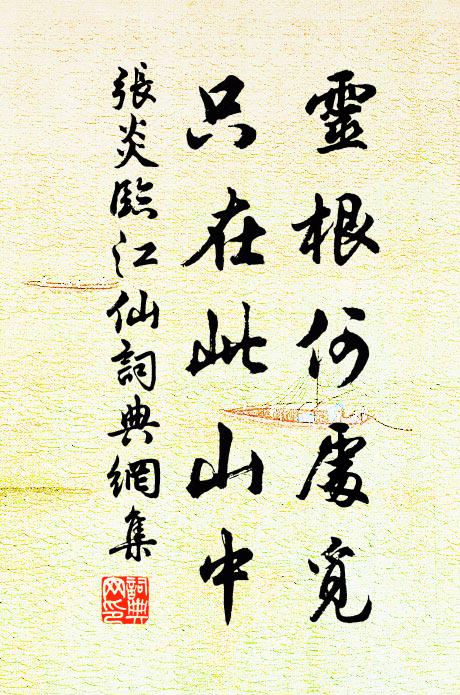 靈根何處覓
只在此山中
張炎臨江仙詞典網集
詞典
网印